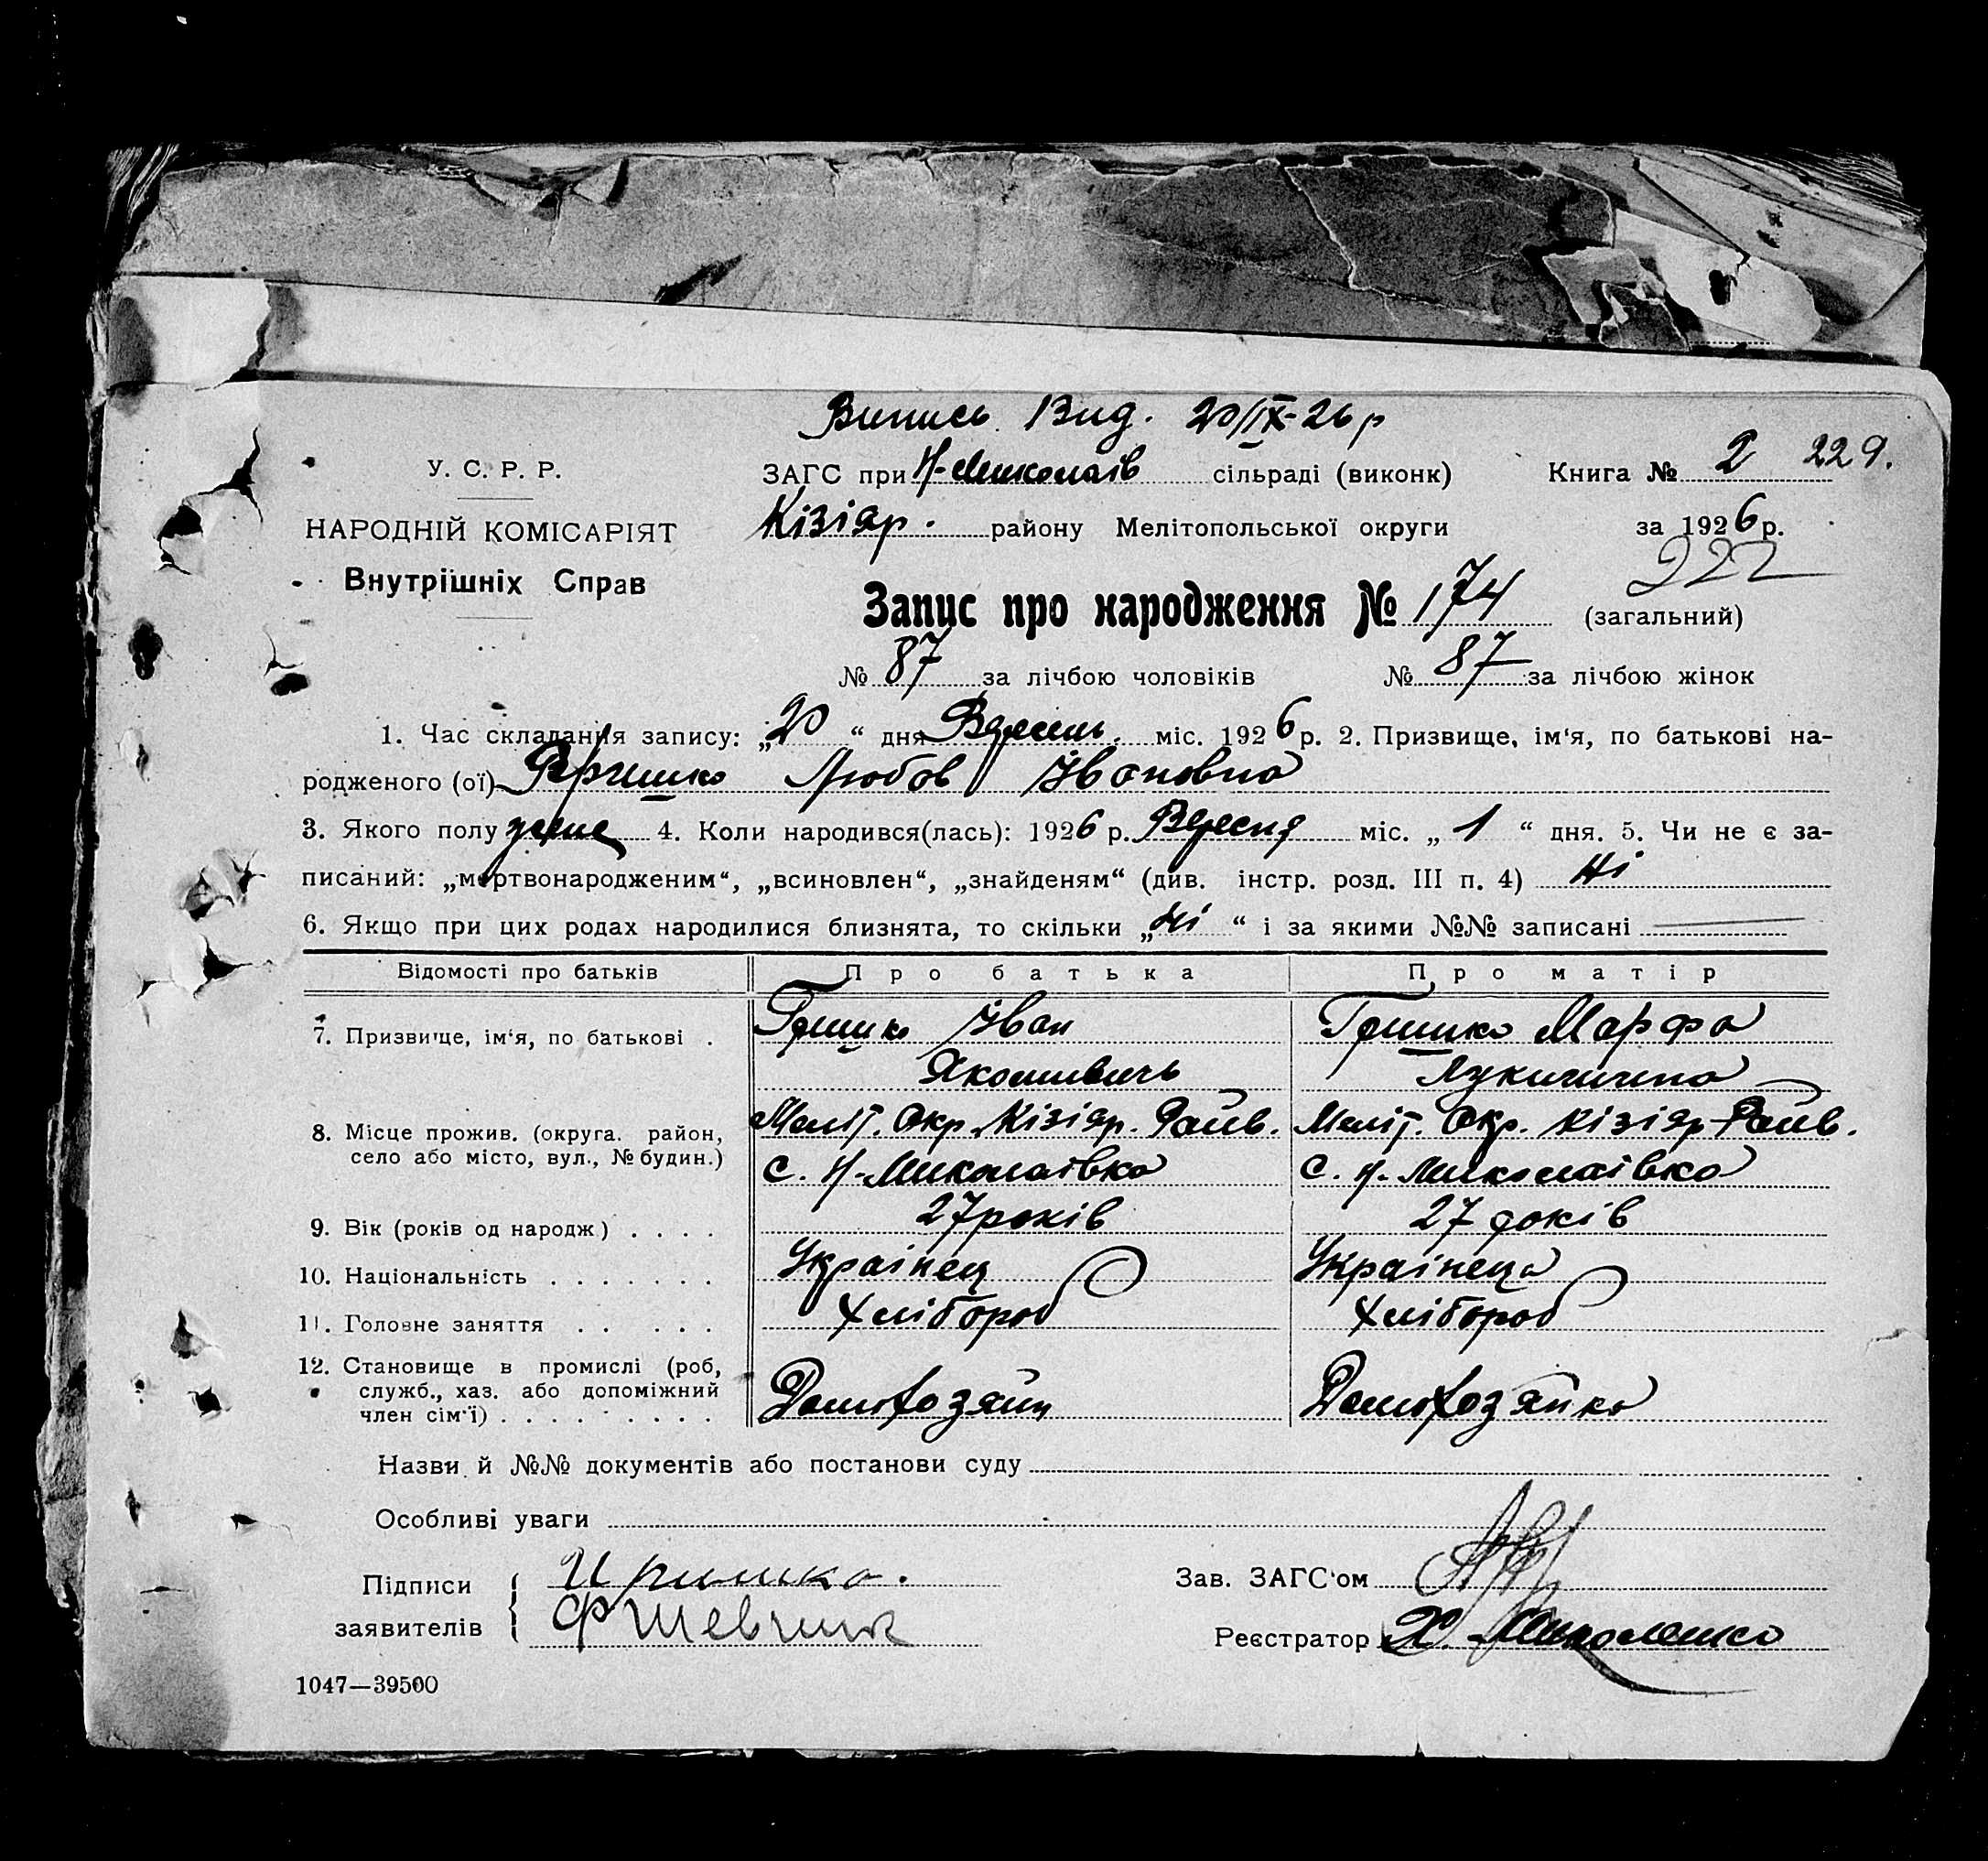 Випись Вид. 20/IX-26 р
У. С. Р. Р.
ЗАГС при Н-Миколаів сільраді (виконк)
Книга № 2 229.
НАРОДНІЙ КОМІСАРІЯТ
Кізіяр. району Мелітопольської округи
за 1926 р.
222
Внутрішніх Справ
Запис про народження № 174 (загальний)
№ 87 за лічбою чоловіків № 87 за лічбою жінок
1. Час складання запису: „20“ дня Вересень. міс. 1926 р. 2. Призвище, ім‘я, по батькові на-
родженого (ої) Гришко Любов Івановна
3. Якого полу жене 4. Коли народився(лась): 1926 р. Вересня міс. „1“ дня. 5. Чи не є за-
писаний: „мертвонародженим“, „всиновлен“, „знайденям“ (див. інстр. розд. III п. 4) Ні
6. Якщо при цих родах народилися близнята, то скільки „Ні“ і за якими №№ записані
Відомості про батьків Про батька Про матір
7. Призвище, ім‘я, по батькові . Гришко Іван Гришко Марфа
Якомивичь Лукинична
8. Місце прожив. (округа. район, Меліт. Окр. Кізіяр. Раів. Меліт. Окр. Кізіяр Раів.
село або місто, вул., № будин.) С. Н-Миколаівка С. Н-Миколаівка
9. Вік (років од народж) . . . . 27 років 27 років
10. Національність . . . . . . . Украінец Украінеца
11. Головне заняття . . . . . Хлібороб Хлібороб
12. Становище в промислі (роб,
служб., хаз. або допоміжний Домохозяин Домохозяйка
член сім‘ї) . . . . . . . . .
Назви й №№ документів або постанови суду
Особливі уваги
Підписи И Гришко.
Зав. ЗАГС‘ом
заявителів Ф Шевчик
Реєстратор Х. Миколенко
1047—39500